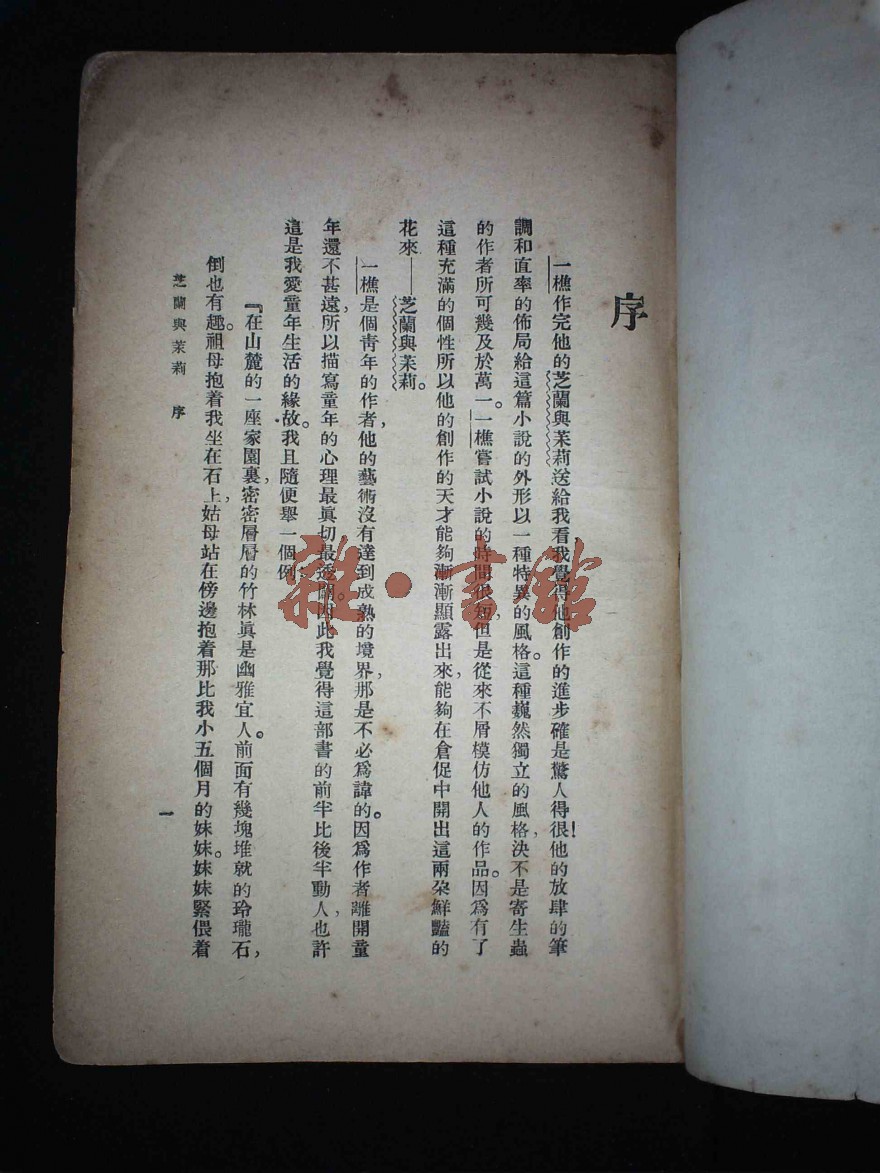 序
一樵作完他的芝蘭與茉莉送給我看我覺得他創作的進步確是驚人得很！他的放肆的筆
調和直率的佈局給這篇小說的外形以一種特異的風格。這種巍然獨立的風格，決不是寄生蟲
的作者所可幾及於萬一。一樵嘗試小說的時間很短，但是從來不屑模仿他人的作品。因爲有了
這種充滿的個性所以他的創作的天才能夠漸漸顯露出來，能夠在倉促中開出這兩朶鮮豔的
花來——芝蘭與茉莉。
一樵是個青年的作者，他的藝術沒有達到成熟的境界，那是不必爲諱的。因爲作者離開童
年還不甚遠，所以描寫童年的心理最眞切最透闢。因此我覺得這部書的前半比後半動人，也許
這是我愛童年生活的緣故。我且隨便舉一個例：
『在山麓的一座家園裏，密密層層的竹林眞是幽雅宜人。前面有幾塊堆就的玲瓏石，
倒也有趣。祖母抱着我坐在石上，姑母站在傍邊抱着那比我小五個月的妹妹。妹妹緊偎着
芝蘭與茉莉 序
一
雜·書館